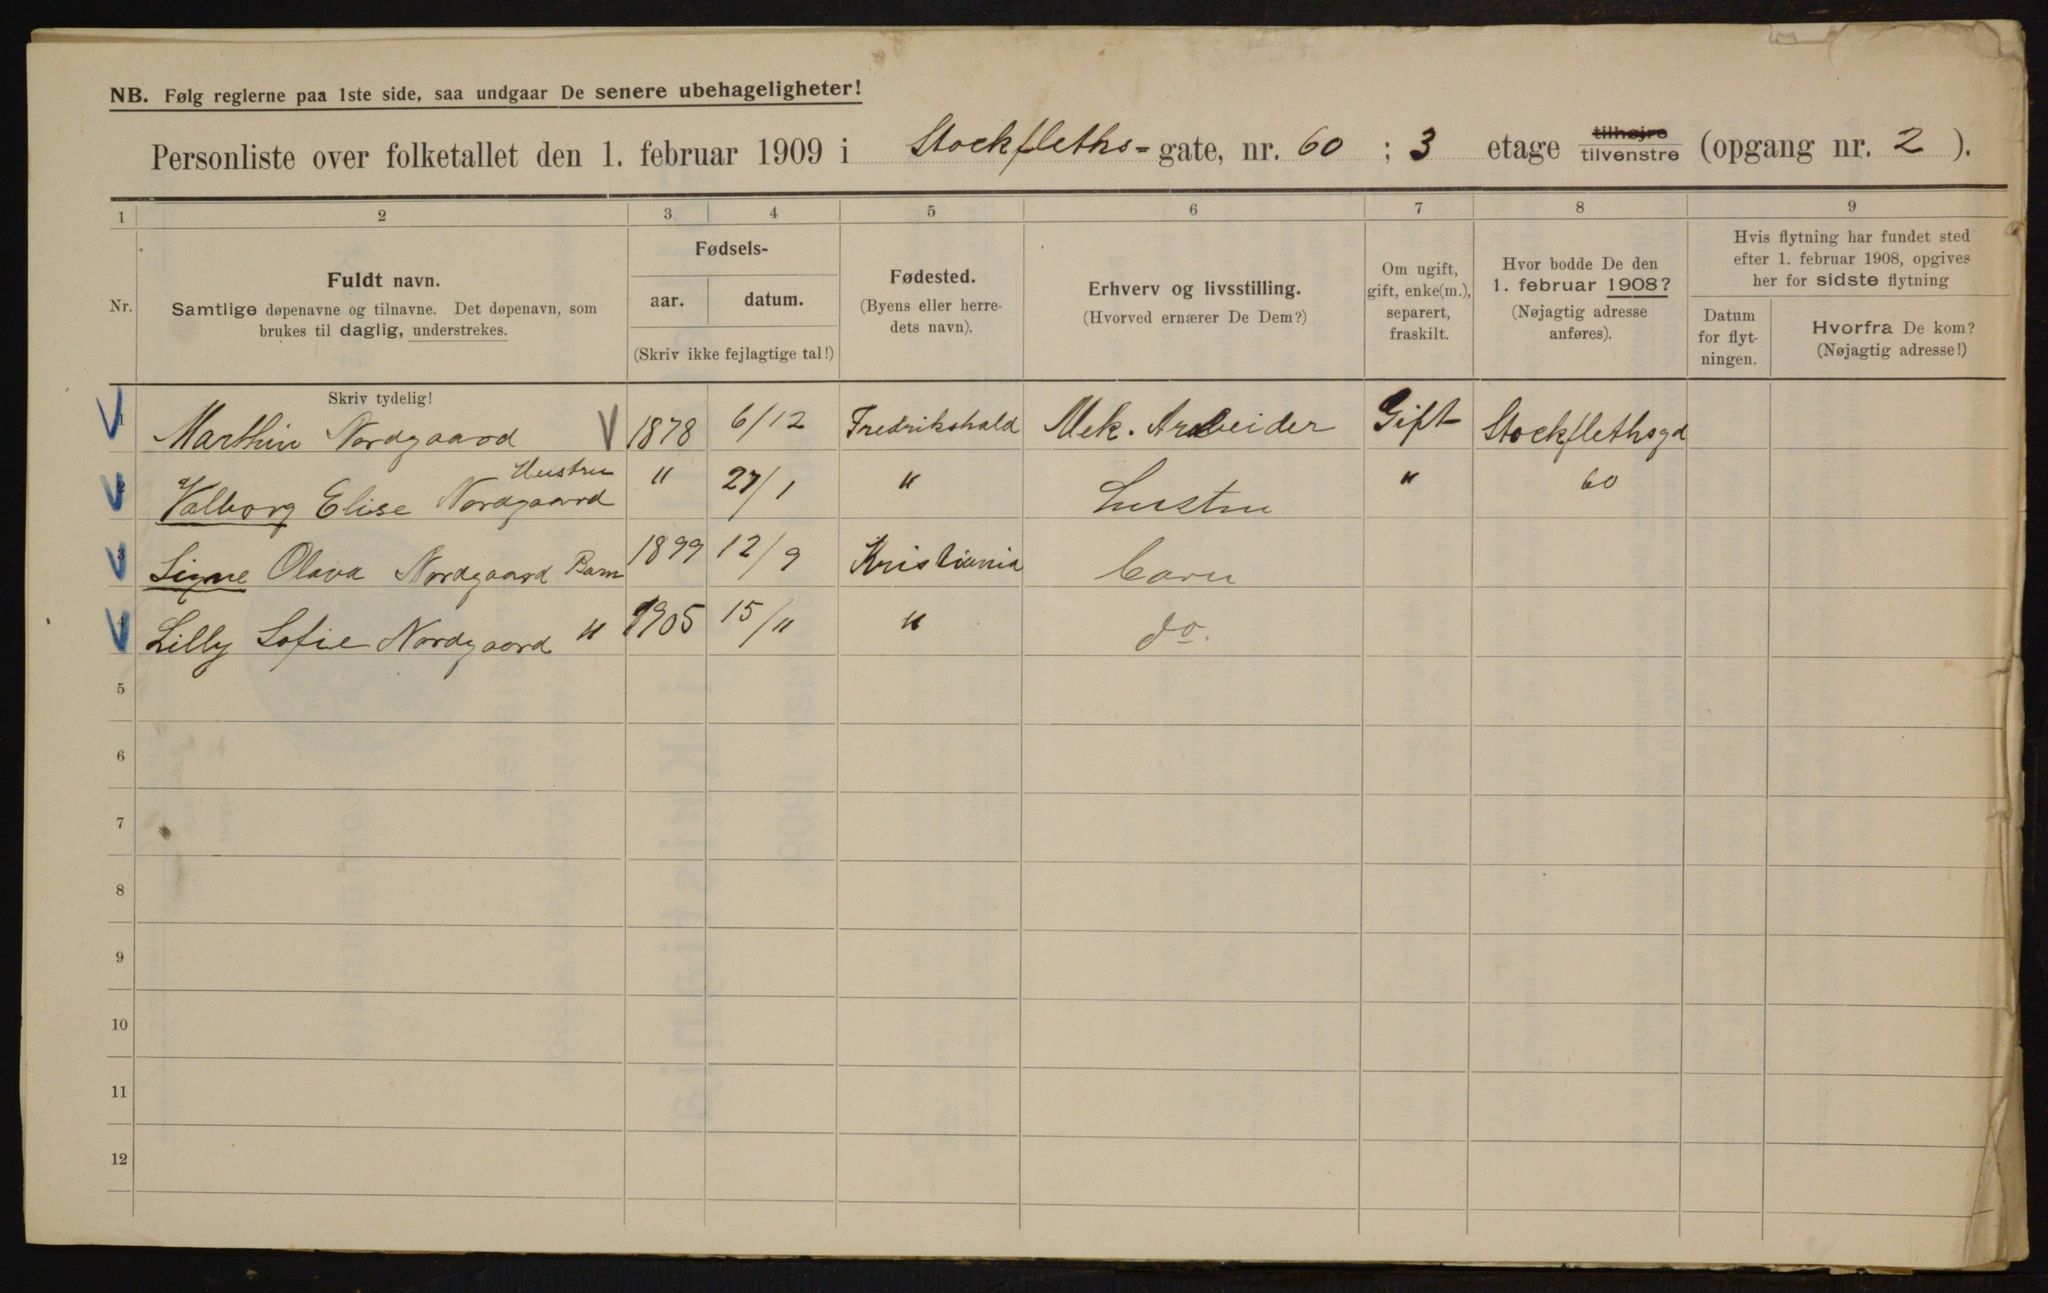 NB. Følg reglerne paa 1ste side, saa undgaar De senere ubehageligheter!
Personliste over folketallet den 1. februar 1909 i Stockfleths-gate, nr. 60 ; 3 etage tilhøjre tilvenstre (opgang nr. 2 ).
1 2 3 4 5 6 7 8 9
Nr.
Fuldt navn.
Samtlige døpenavne og tilnavne. Det døpenavn, som
brukes til daglig, understrekes.
Fødsels-
aar. datum.
(Skriv ikke fejlagtige tal!)
Fødested.
(Byens eller herre-
dets navn).
Erhverv og livsstilling.
(Hvorved ernærer De Dem?)
Om ugift,
gift, enke(m.),
separert,
fraskilt.
Hvor bodde De den
1. februar 1908?
(Nøjagtig adresse
anføres).
Hvis flytning har fundet sted
efter 1. februar 1908, opgives
her for sidste flytning
Datum
for flyt-
ningen.
Hvorfra De kom?
(Nøjagtig adresse!)
Skriv tydelig!
1 Marthin Nordgaard 1878 6/12 Fredrikshald Mek. Arbeider Gift Stockflethsgd
Hustru
2 Valborg Elise Nordgaard " 27/1 " " 60
3 Signe Olava Nordgaard Barn 1899 12/9 Kristiania barn
4 Lilly Sofie Nordgaard " 1905 15/11 " do.
5
6
7
8
9
10
11
12